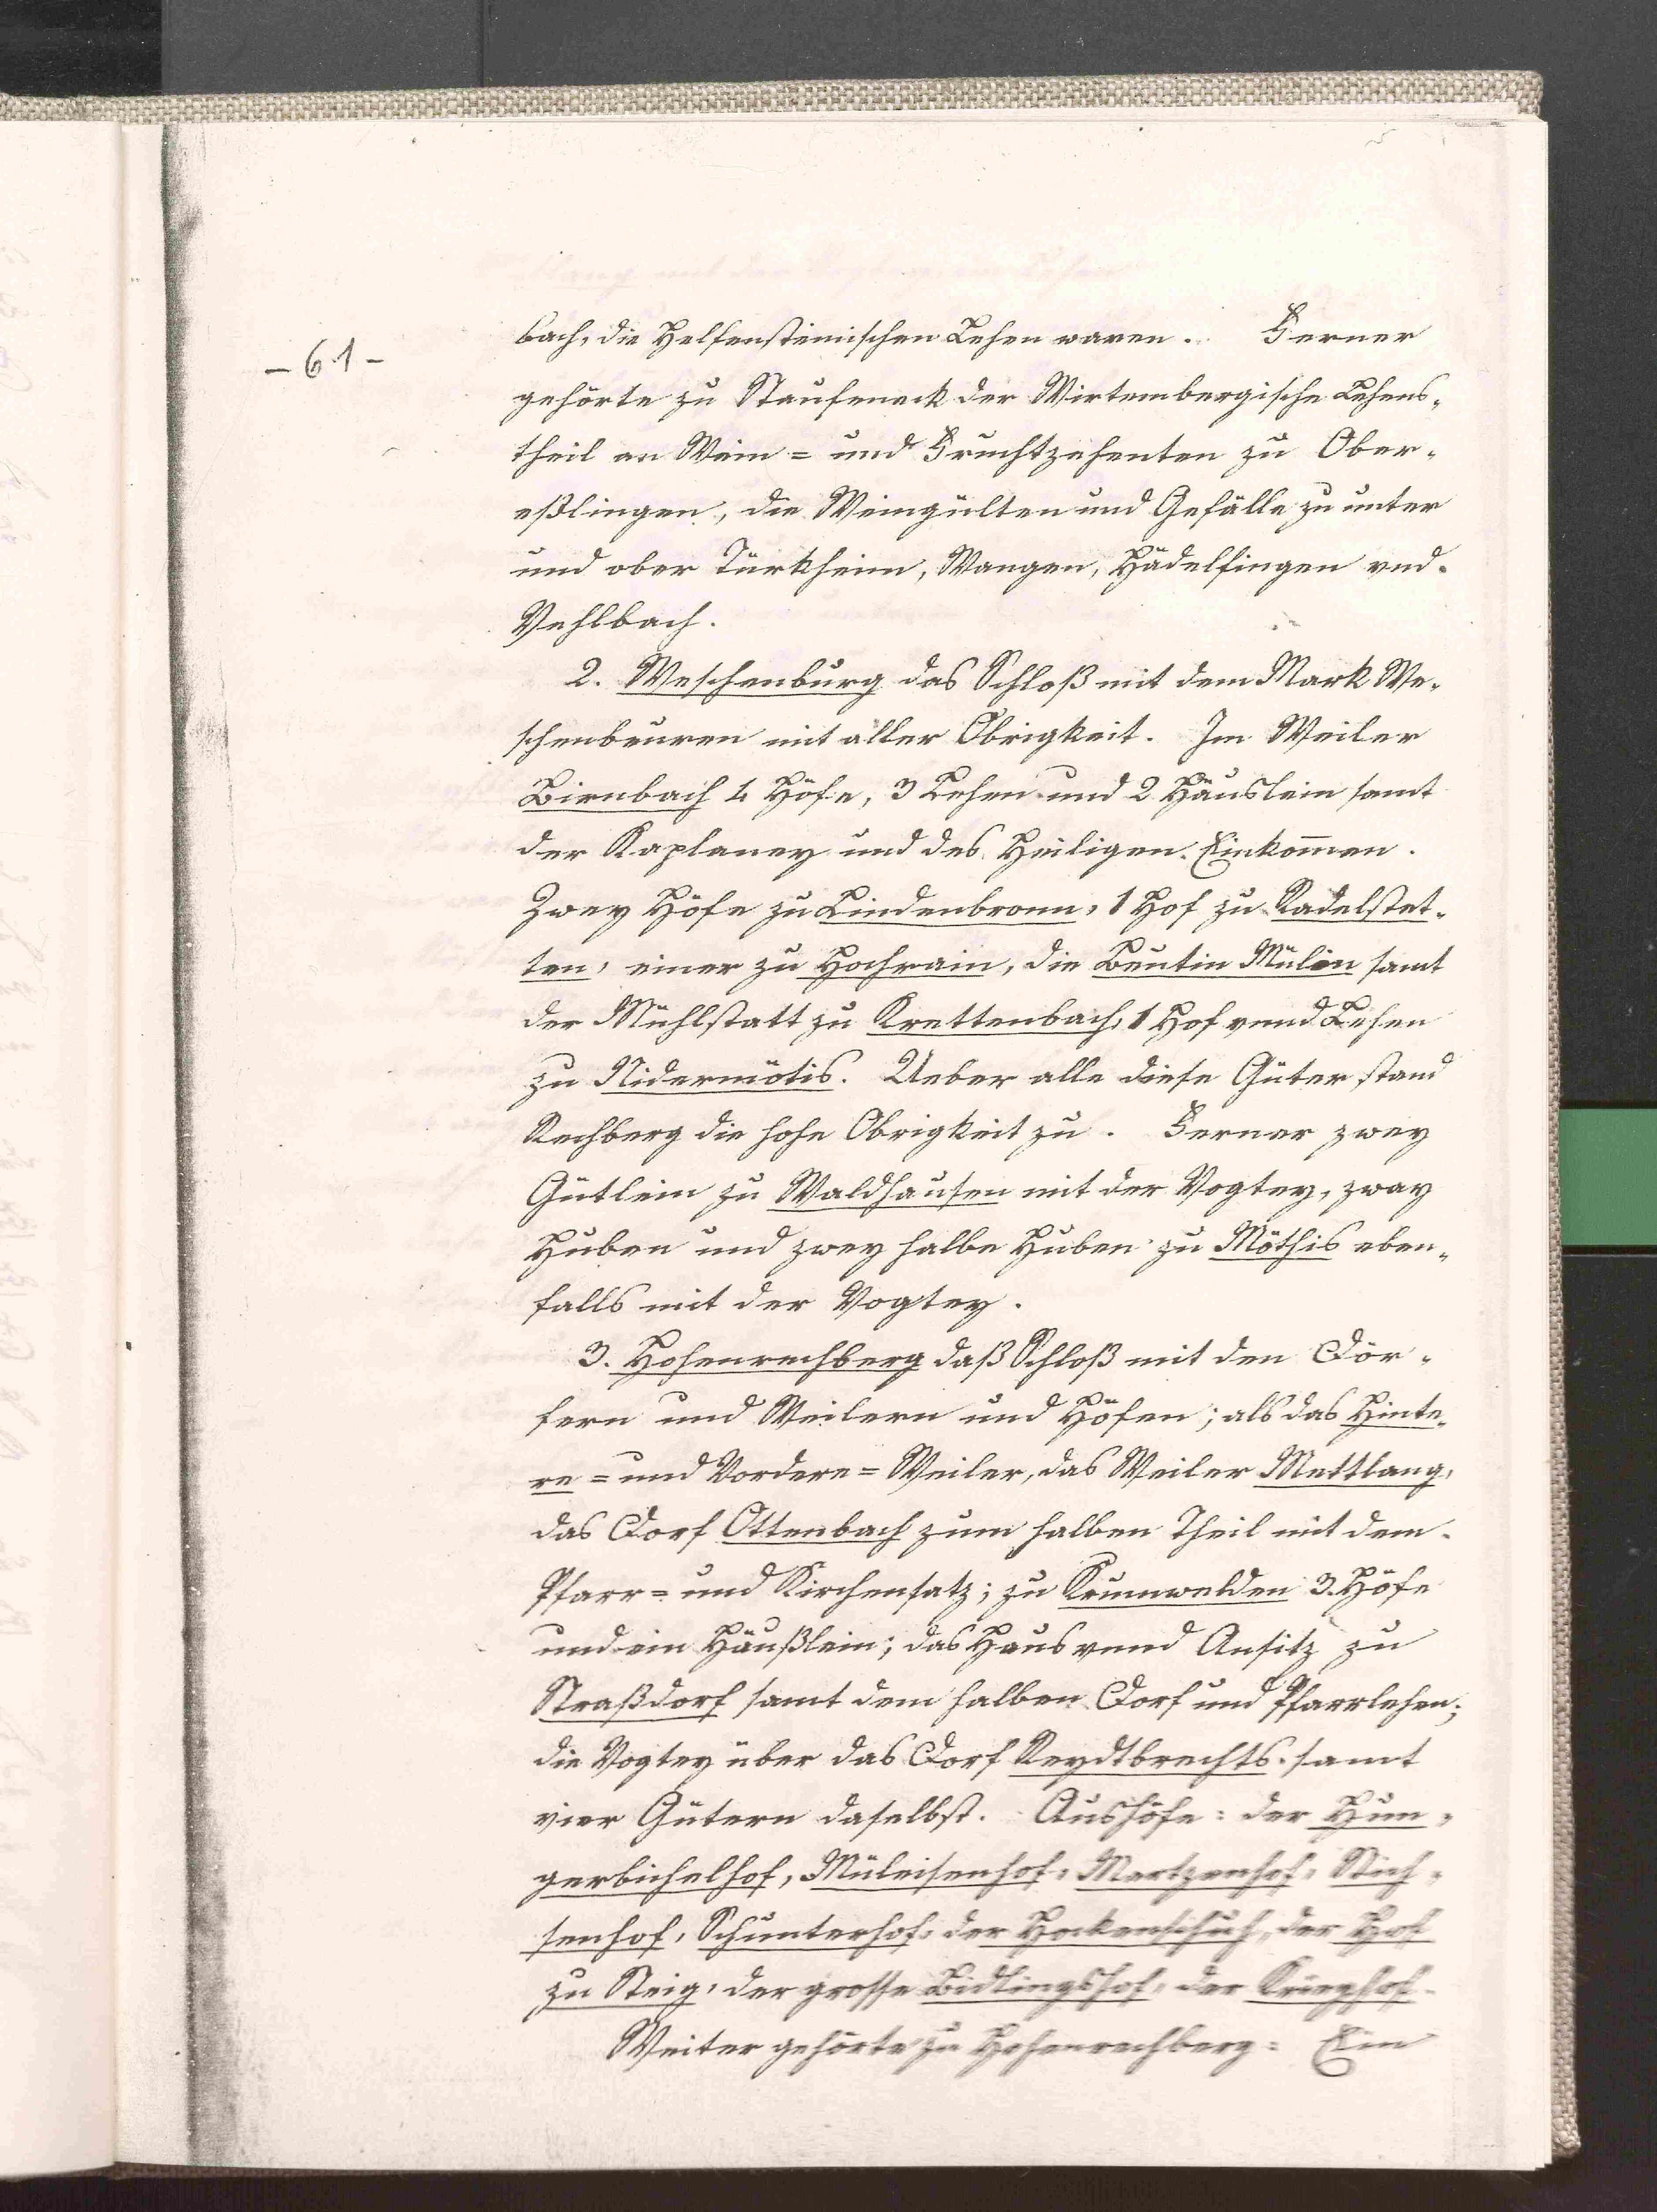 - 61 -
bach, die Helfensteinischen Lehen waren. Ferner
gehörte zu Staufeneck der Wirtembergische Lehens-
theil an Wein = und Fruchtzehenten zu Ober-
eßlingen, die Weingülten und Gefälle zu unter
und ober Türkheim, Wangen, Hädelfingen vnd
Vehlbach.
2. Weschenburg das Schloß mit dem Mark We-
schenbeuren mit aller Obrigkeit. Im Weiler
Birnbach 4 Höfe, 3 Lehen und 2 Häuslein samt
der Kaplaney und des Heiligen Einkom̅en.
Zwey Höfe zu Lindenbronn, 1 Hof zu Radelstet-
ten, einer zu Hochrain, die Beutin Mülin samt
der Mühlstatt zu Krettenbach, 1 Hof vnnd Lehen
zu Nidermötis. Ueber alle diese Güter stand
Rechberg die hohe Obrigkeit zu. Ferner zwey
Gütlein zu Waldhausen mit der Vogtey, zway
Huben und zwey halbe Huben zu Möthis eben-
falls mit der Vogtey.
3. Hohenrechberg daß Schloß mit den Dör-
fern und Weilern und Höfen; als das Hinte-
re = und Vordere = Weiler, das Weiler Mettlang,
das Dorf Ottenbach zum halben Theil mit dem
Pfarr = und Kirchensatz; zu Krumwelden 3. Höfe
und ein Häußlein; das Haus vnnd Ansitz zu
Straßdorf samt dem halben Dorf und Pfarrlehen;
die Vogtey über das Dorf Reydtbrechts samt
vier Gütern daselbst. Aushöfe: der Hun-
gerbichelhof, Müleisenhof, Mertzenhof, Stich-
senhof, Schunterhof, der Hockenschuh, der Hof
zu Steig, der grosse Bidlingshof, der Krieghof.
Weiter gehörte zu Hohenrechberg: Ein